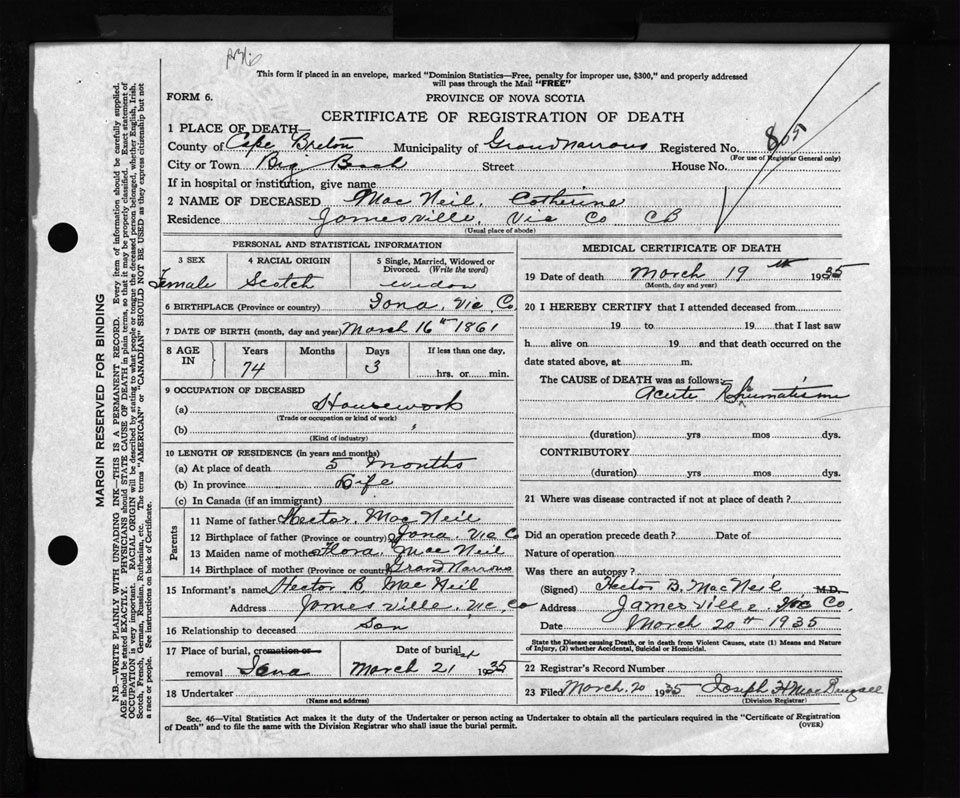 This form if placed in an envelope, marked "Dominion Statistics—Free, penalty for improper use, $300," and properly addressed
will pass through the Mail "FREE"
FORM 6.
PROVINCE OF NOVA SCOTIA
CERTIFICATE OF REGISTRATION OF DEATH
1 PLACE OF DEATH
County of Cape Breton Municipality of Grand Narrows Registered No. 805
(For use of Registrar General only)
City or Town Big Beach Street House No.
If in hospital or institution, give name
2 NAME OF DECEASED Mac Neil, Catherine
Residence Jamesville, Vic Co CB
(Usual place of abode)
PERSONAL AND STATISTICAL INFORMATION
3 SEX 4 RACIAL ORIGIN 5 Single, Married, Widowed or
Divorced. (Write the word)
Female Scotch widow
6 BIRTHPLACE (Province or country) Iona, Vic, Co.
7 DATE OF BIRTH (month, day and year) March 16th 1861
8 AGE IN Years Months Days If less than one day,
74 3 hrs. or min.
9 OCCUPATION OF DECEASED
(a) Housework
(Trade or occupation or kind of work)
(b)
(Kind of industry)
10 LENGTH OF RESIDENCE (in years and months)
(a) At place of death 5 Months
(b) In province Life
(c) In Canada (if an immigrant)
Parents
11 Name of father Hector, Mac Neil
12 Birthplace of father (Province or country) Iona, Vic Co
13 Maiden name of mother Flora, Mac Neil
14 Birthplace of mother (Province or country) Grand Narrows
15 Informant's name Hector B. Mac Neil
Address Jamesville, Vic, Co
16 Relationship to deceased Son
17 Place of burial, cremation or Date of burial
removal Iona March 21st 1935
18 Undertaker
(Name and address)
MEDICAL CERTIFICATE OF DEATH
19 Date of death March 19th 1935
(Month, day and year)
20 I HEREBY CERTIFY that I attended deceased from
19 to 19 that I last saw
h alive on 19 and that death occurred on the
date stated above, at m.
The CAUSE of DEATH was as follows:
Acute Rheumatism
(duration) yrs mos dys.
CONTRIBUTORY
(duration) yrs mos dys.
21 Where was disease contracted if not at place of death ?
Did an operation precede death ? Date of
Nature of operation
Was there an autopsy ?
(Signed) Hector B. MacNeil M.D.
Address Jamesville Vic Co.
Date March 20th 1935
State the Disease causing Death, or in death from Violent Causes, state (1) Means and Nature
of Injury, (2) whether Accidental, Suicidal or Homicidal.
22 Registrar's Record Number
23 Filed March. 20 1935 Joseph H MacDougall
(Division Registrar)
Sec. 46—Vital Statistics Act makes it the duty of the Undertaker or person acting as Undertaker to obtain all the particulars required in the "Certificate of Registration
of Death" and to file the same with the Division Registrar who shall issue the burial permit.
(OVER)
MARGIN RESERVED FOR BINDING
N.B.—WRITE PLAINLY WITH UNFADING INK—THIS IS A PERMANENT RECORD. Every item of information should be carefully supplied.
AGE should be stated EXACTLY. PHYSICIANS should STATE CAUSE OF DEATH in plain terms, so that it may be properly classified. Exact statement of
OCCUPATION is very important. RACIAL ORIGIN will be described by stating to what people or tongue the deceased person belonged, whether English, Irish,
Scotch, French, German, Russian, Ruthenian, etc. The terms "AMERICAN" or "CANADIAN" SHOULD NOT BE USED as they express citizenship but not
a race or people. See instructions on back of Certificate.